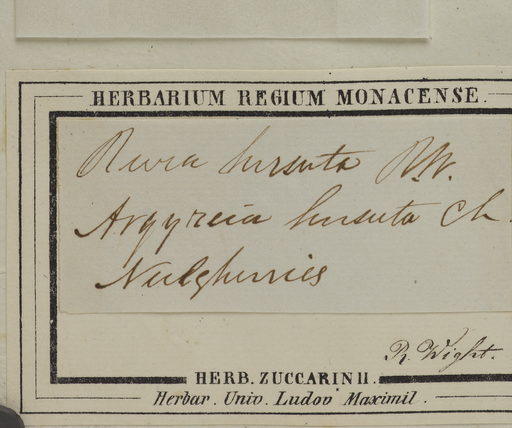 HERBARIUM REGIUM MONACENSE.
Rivea hirsuta R.W.
Argyreia hirsuta Ch.
Neelgherries
R. Wight.
HERB. ZUCCARINII.
Herbar. Univ. Ludov Maximil.